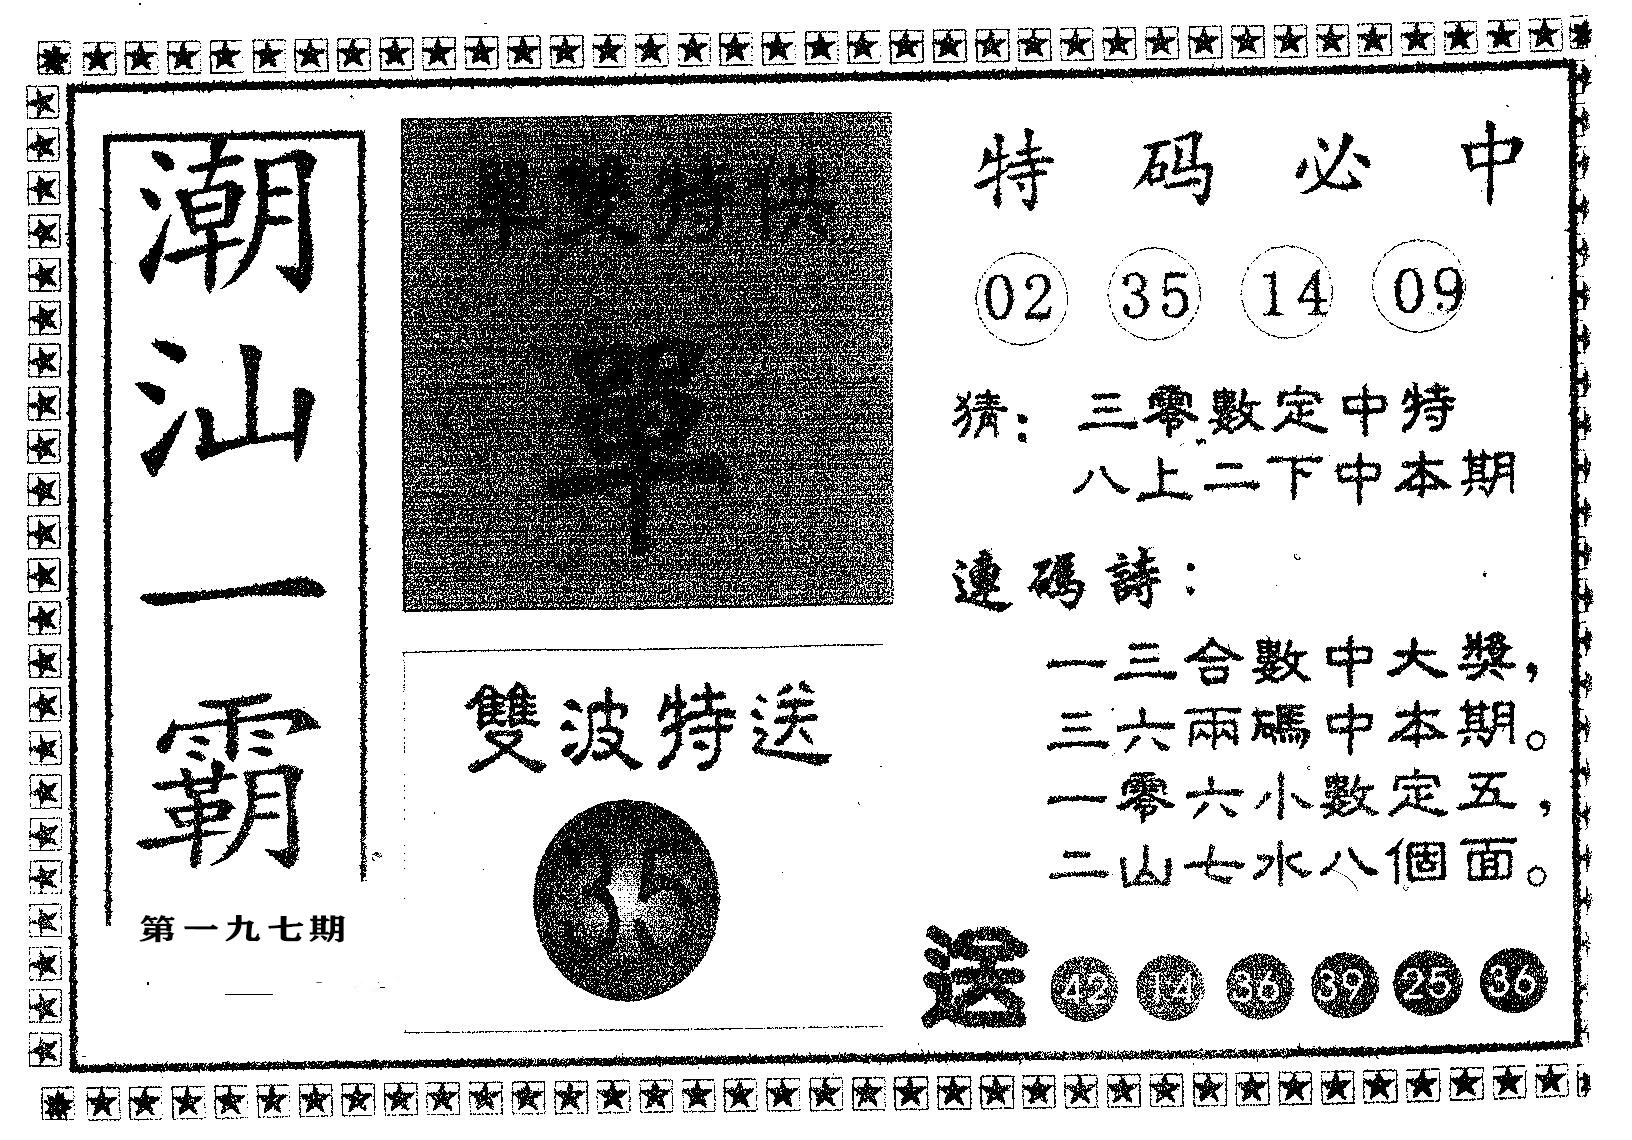 潮汕一霸
第一九七期
單雙特供
單
雙波特送
35
特码必中
02 35 14 09
猜：三零數定中特
八上二下中本期
連碼詩：
一三合數中大獎，
三六兩碼中本期。
一零六小數定五，
二山七水八個面。
送 42 14 36 39 25 36